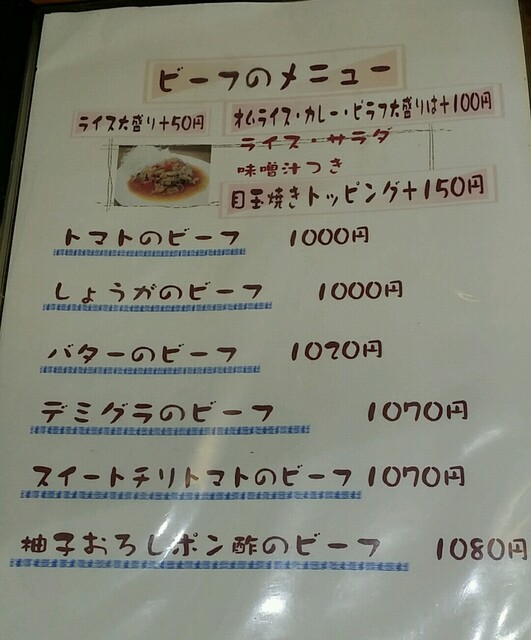 ビーフのメニュー
ライス大盛り+50円
オムライス・カレー・ピラフ大盛りは+100円
ライス・サラダ
味噌汁つき
目玉焼きトッピング+150円
トマトのビーフ 1000円
しょうがのビーフ 1000円
バターのビーフ 1020円
デミグラのビーフ 1070円
スイートチリトマトのビーフ 1070円
柚子おろしポン酢のビーフ 1080円